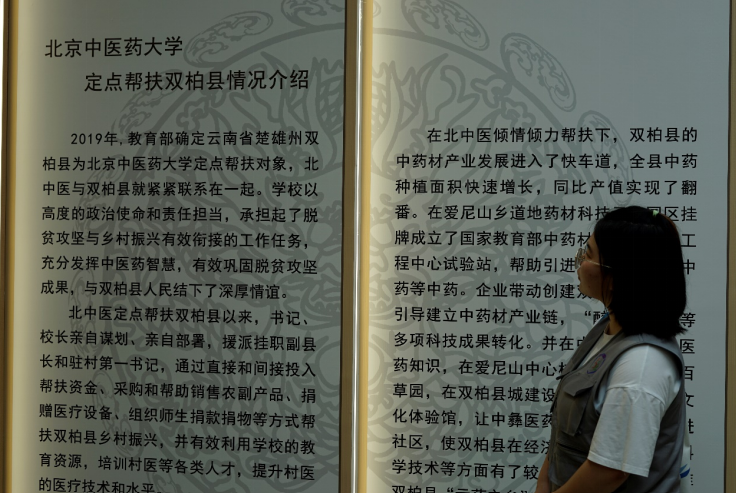 北京中医药大学
定点帮扶双柏县情况介绍
2019年，教育部确定云南省楚雄州双
柏县为北京中医药大学定点帮扶对象，北
中医与双柏县就紧紧联系在一起。学校以
高度的政治使命和责任担当，承担起了脱
贫攻坚与乡村振兴有效衔接的工作任务，
充分发挥中医药智慧，有效巩固脱贫攻坚
成果，与双柏县人民结下了深厚情谊。
北中医定点帮扶双柏县以来，书记、
校长亲自谋划、亲自部署，援派挂职副县
长和驻村第一书记，通过直接和间接投入
帮扶资金、采购和帮助销售农副产品、捐
赠医疗设备、组织师生捐款捐物等方式帮
扶双柏县乡村振兴，并有效利用学校的教
育资源，培训村医等各类人才，提升村医
的医疗技术和水平。
在北中医倾情倾力帮扶下，双柏县的
中药材产业发展进入了快车道，全县中药
种植面积快速增长，同比产值实现了翻
番。在爱尼山乡道地药材科技 园区挂
牌成立了国家教育部中药材 工
程中心试验站，帮助引进 中
药等中药。企业带动创建双
引导建立中药材产业链，“ 等
多项科技成果转化。并在中 医
药知识，在爱尼山中心校 百
草园，在双柏县城建设 文
化体验馆，让中彝医药 进
社区，使双柏县在经济
学技术等方面有了较
双柏县“云药之乡